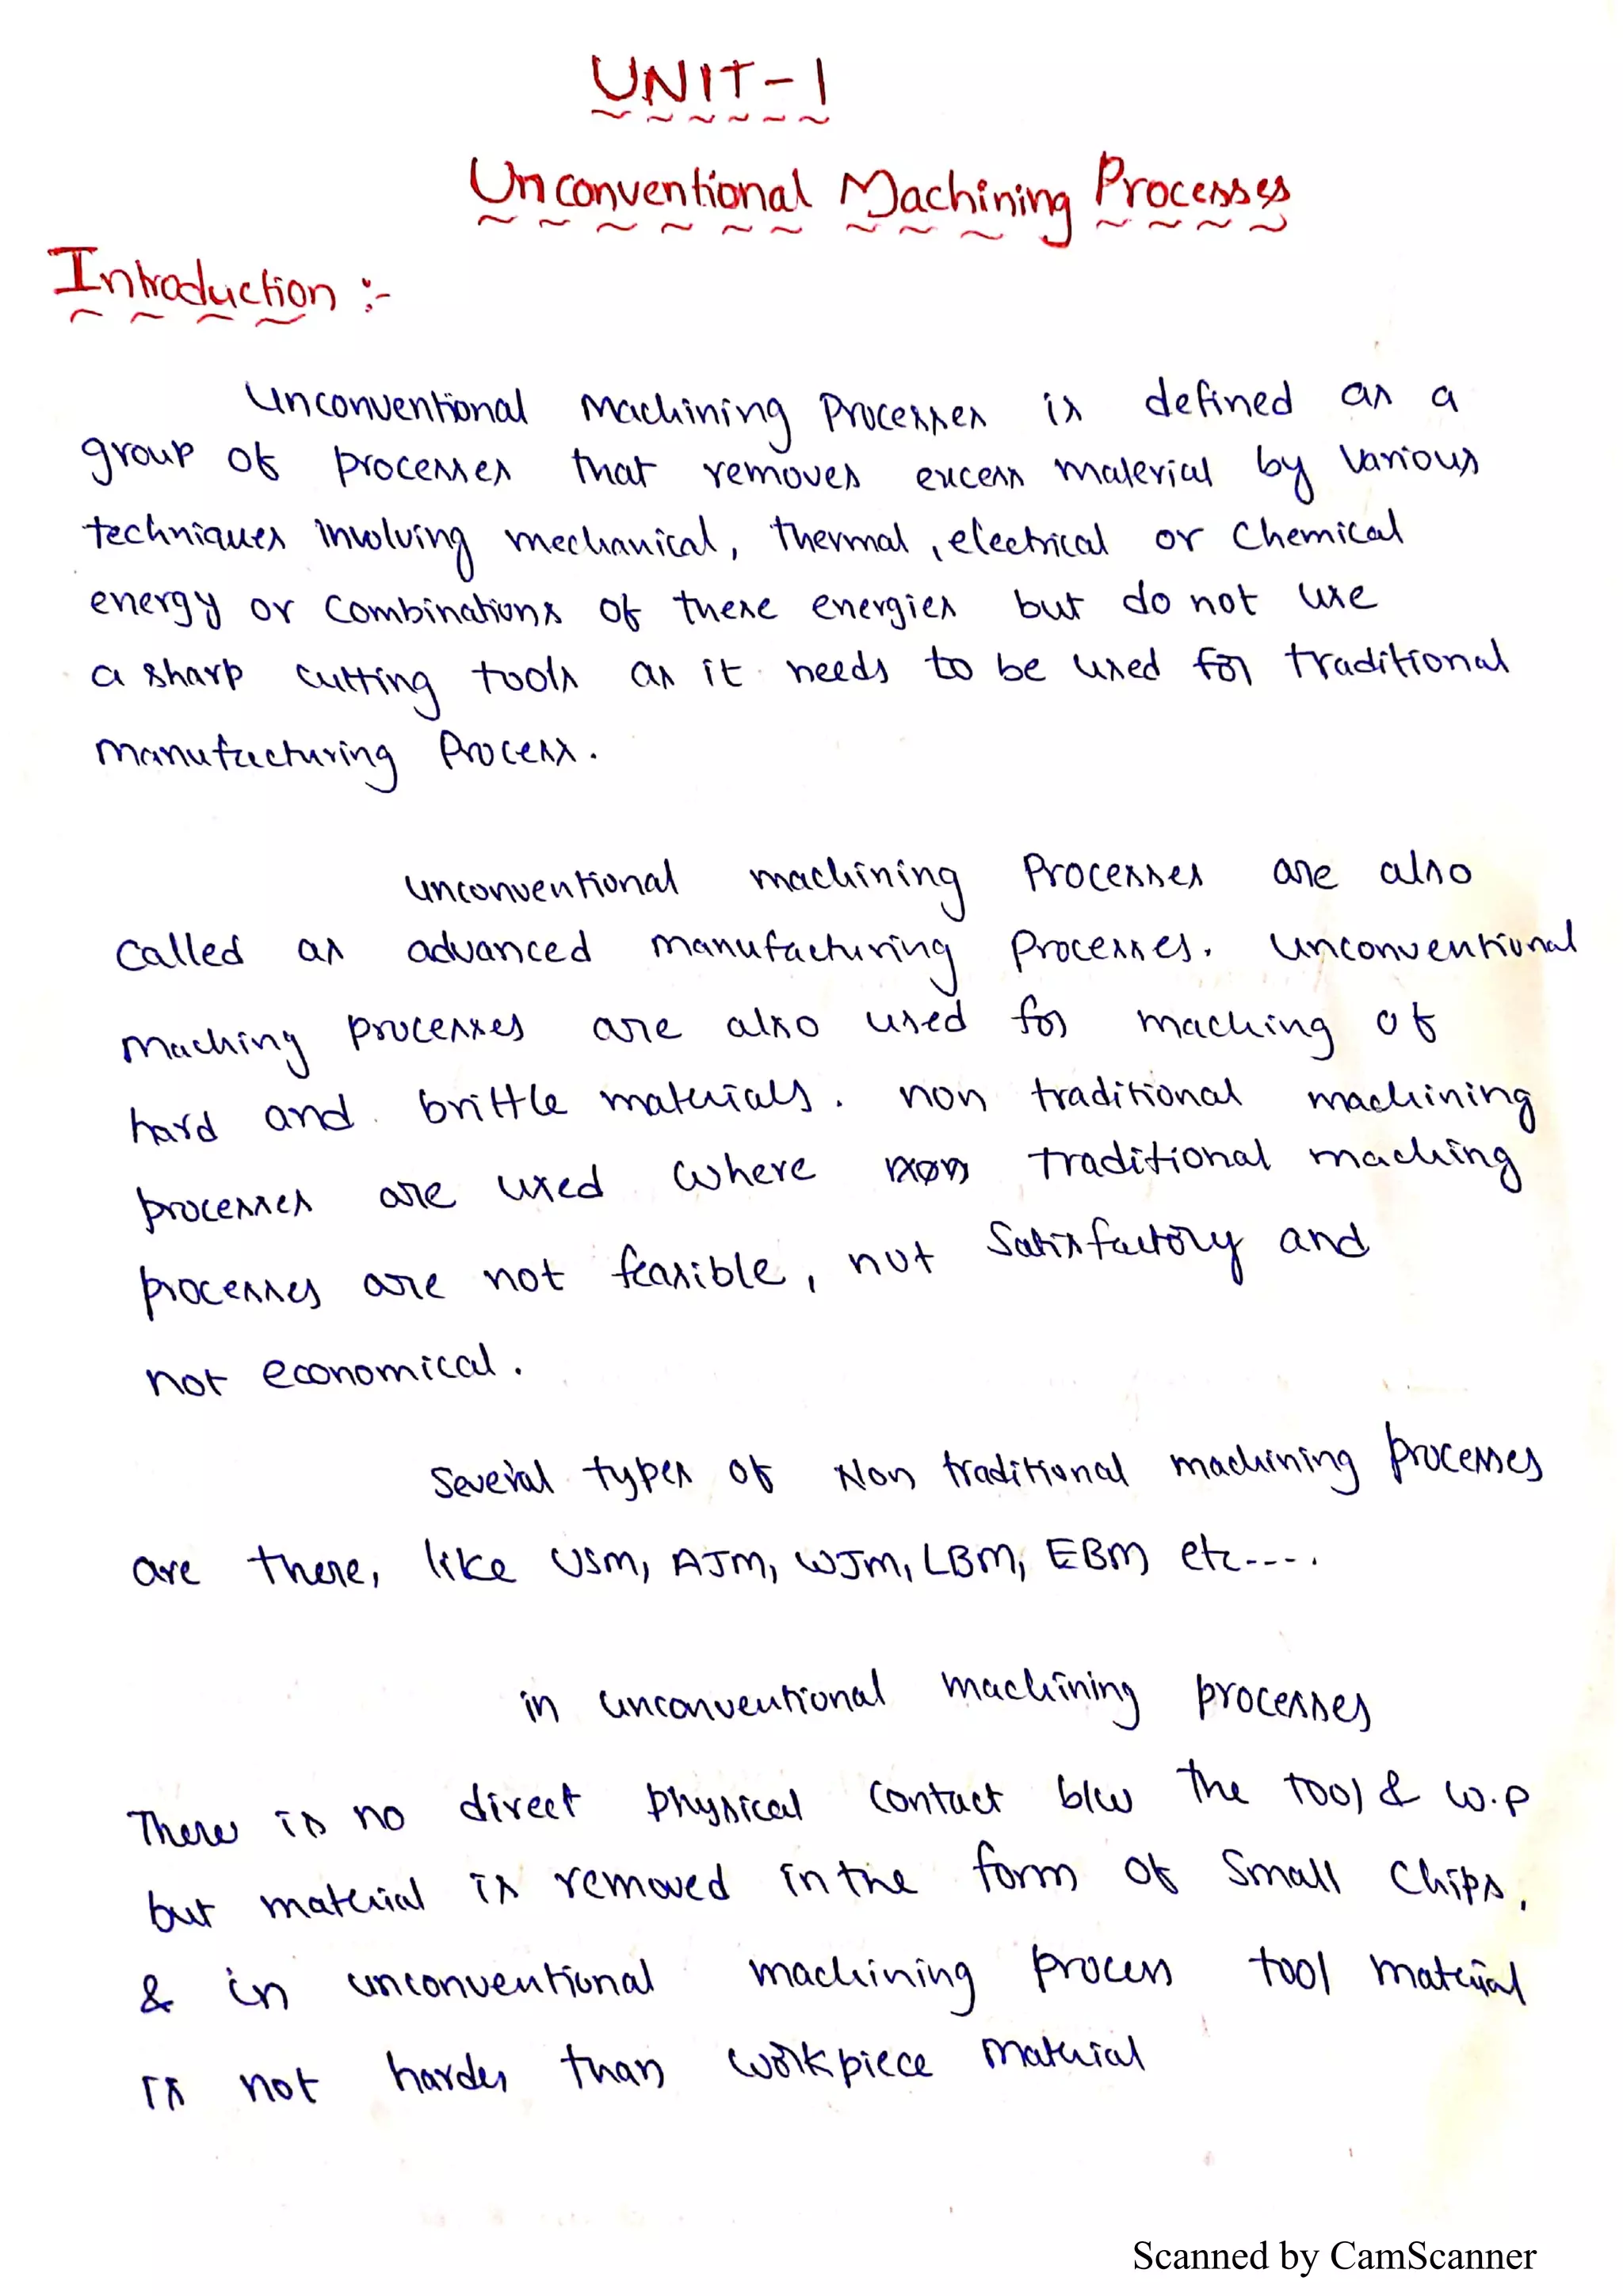 UNIT-1
Unconventional Machining Processes
Introduction :-
Unconventional Machining Processes is defined as a
group of processes that removes excess material by various
techniques involving mechanical, thermal, electrical or chemical
energy or combinations of these energies but do not use
a sharp cutting tools as it needs to be used for traditional
manufacturing Process.
unconventional machining Processes are also
called as advanced manufacturing processes. unconventional
maching processes are also used for maching of
hard and brittle materials. non traditional machining
processes are used where traditional maching
processes are not feasible, not Satisfactory and
not economical.
Several types of Non traditional machining processes
are there, like USM, AJM, WJM, LBM, EBM etc----.
in unconventional machining processes
There is no direct physical Contact b/w the tool & w.p
but material is removed in the form of Small Chips,
& in unconventional machining process tool material
is not harder than workpiece material
Scanned by CamScanner